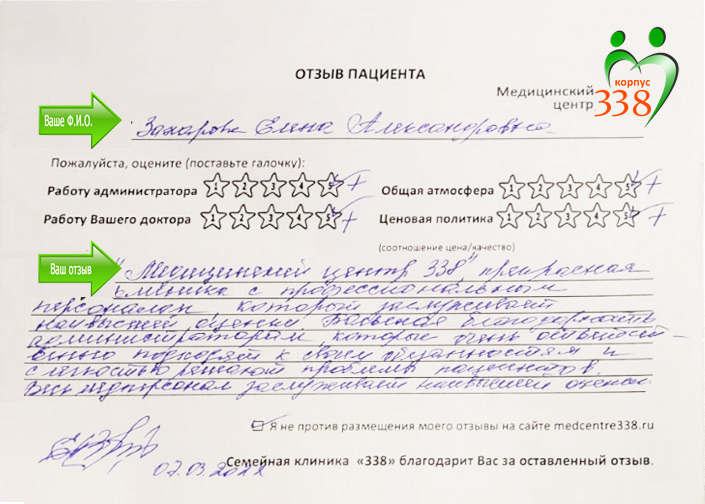 ОТЗЫВ ПАЦИЕНТА
Медицинский
центр
корпус
338
Ваше Ф.И.О.
Захарова Елена Александровна
Пожалуйста, оцените (поставьте галочку):
Работу администратора 1 2 3 4 5 +
Общая атмосфера 1 2 3 4 5 +
Работу Вашего доктора 1 2 3 4 5 +
Ценовая политика 1 2 3 4 5 +
(соотношение цена/качество)
Ваш отзыв
"Медицинский центр 338" прекрасная
клиника с профессиональным
персоналом, который заслуживает
наивысшей оценки. Большая благодарность
администраторам, которые очень ответст-
венно подходят к своим обязанностям и
с легкостью решают проблемы пациентов.
Весь медперсонал заслуживает наивысшей оценки.
Я не против размещения моего отзывы на сайте medcentre338.ru
07.03.2022
Семейная клиника «338» благодарит Вас за оставленный отзыв.